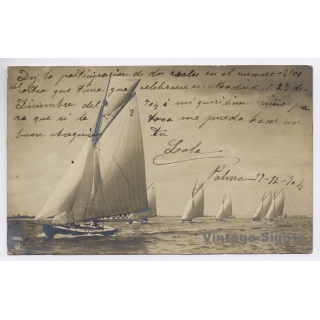 Doy la participacion de dos reales en el numero
sorteo que tiene que celebrarse en Madrid 23 de
Diciembre del 904 á mi queridisimo
ra que si le toca me pueda hacer un
buen obsequio tu
Lola
Palma 17-12-904
2
Vintage-Sights